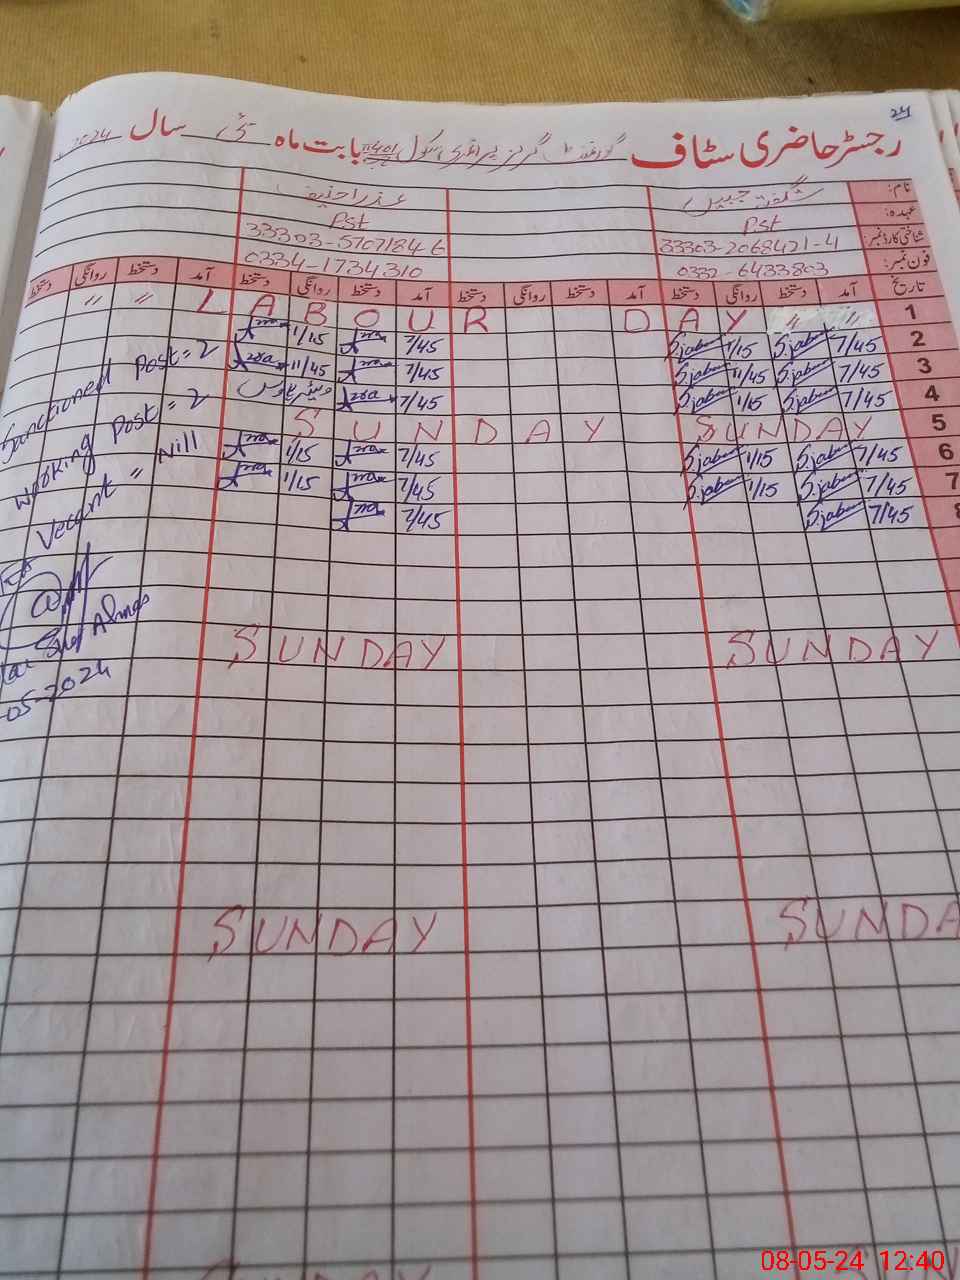 24
رجسٹر حاضری سٹاف گورنمنٹ گرلز پرائمری سکول بابت ماہ مئی سال 2024
نام: شگفتہ جبیں عذرا حنیف
عہدہ: Pst Pst
شناختی کارڈ نمبر: 33303-2068421-4 33303-5707184-6
فون نمبر: 0332-6433803 0334-1734310
تاریخ آمد دستخط روانگی دستخط آمد دستخط روانگی دستخط آمد دستخط روانگی دستخط آمد دستخط روانگی دستخط
" " L A B O U R D A Y " " 1
1/15 7/45 Sjabeen 1/15 Sjabeen 7/45 2
11/45 7/45 Sjabeen 11/45 Sjabeen 7/45 3
7/45 Sjabeen 1/15 Sjabeen 7/45 4
S U N D A Y SUNDAY 5
1/15 7/45 Sjabeen 1/15 Sjabeen 7/45 6
1/15 7/45 Sjabeen 1/15 Sjabeen 7/45 7
7/45 Sjabeen 7/45 8
Sanctioned Post = 2
Working Post = 2
Vecant " = Nill
05-2024
SUNDAY SUNDAY
SUNDAY SUNDA
08-05-24 12:40